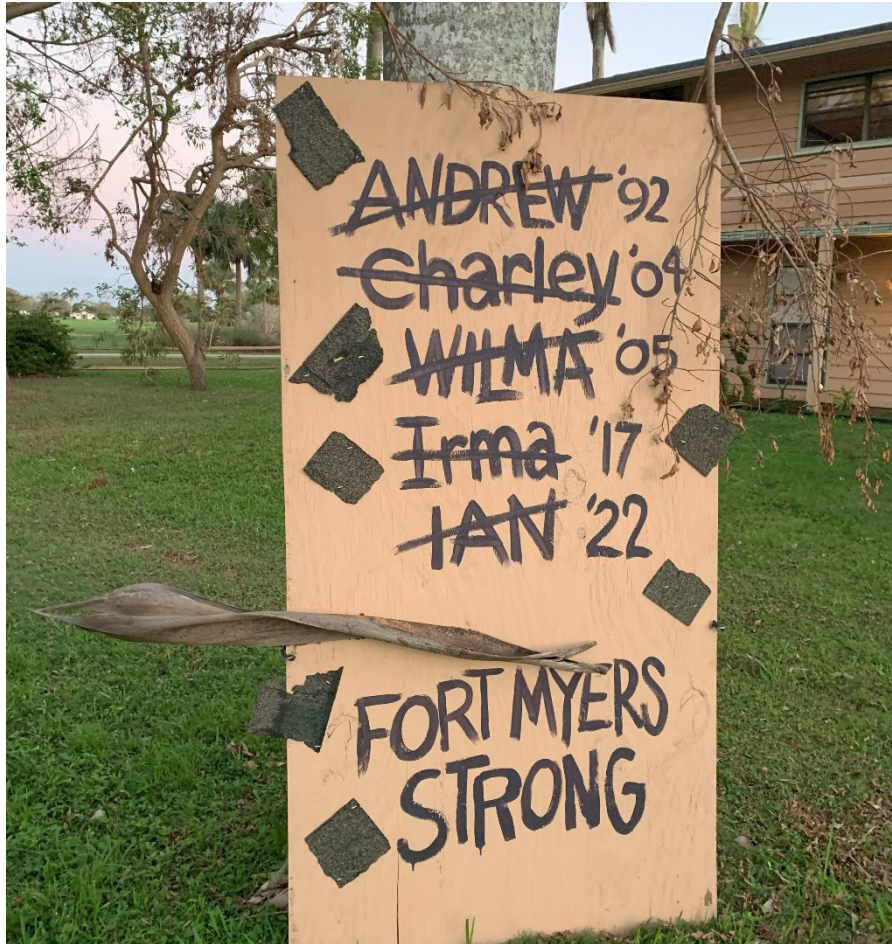 ANDREW '92
Charley '04
WILMA '05
Irma '17
IAN '22
FORT MYERS
STRONG